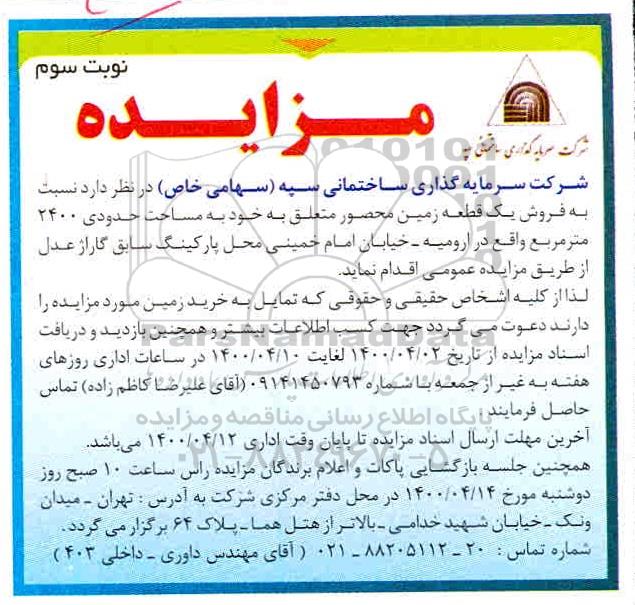 نوبت سوم
مزایده
شرکت سرمایه گذاری ساختمانی سپه
شرکت سرمایه گذاری ساختمانی سپه (سهامی خاص) در نظر دارد نسبت
به فروش یک قطعه زمین محصور متعلق به خود به مساحت حدودی ۲۴۰۰
مترمربع واقع در ارومیه ـ خیابان امام خمینی محل پارکینگ سابق گاراژ عدل
از طریق مزایده عمومی اقدام نماید.
لذا از کلیه اشخاص حقیقی و حقوقی که تمایل به خرید زمین مورد مزایده را
دارند دعوت می گردد جهت کسب اطلاعات بیشتر و همچنین بازدید و دریافت
اسناد مزایده از تاریخ ۱۴۰۰/۰۴/۰۲ لغایت ۱۴۰۰/۰۴/۱۰ در ساعات اداری روزهای
هفته به غیر از جمعه با شماره ۰۹۱۴۱۴۵۰۷۹۳ (آقای علیرضا کاظم زاده) تماس
حاصل فرمایند.
آخرین مهلت ارسال اسناد مزایده تا پایان وقت اداری ۱۴۰۰/۰۴/۱۲ می‌باشد.
همچنین جلسه بازگشایی پاکات و اعلام برندگان مزایده راس ساعت ۱۰ صبح روز
دوشنبه مورخ ۱۴۰۰/۰۴/۱۴ در محل دفتر مرکزی شرکت به آدرس : تهران ـ میدان
ونک ـ خیابان شهید خدامی ـ بالاتر از هتل هما ـ پلاک ۶۴ برگزار می گردد.
شماره تماس : ۲۰ ـ ۸۸۲۰۵۱۱۲ ـ ۰۲۱ ( آقای مهندس داوری ـ داخلی ۴۰۳ )
ParsNamadData
پایگاه اطلاع رسانی مناقصه و مزایده
۰۲۱-۸۸۳۴۹۶۷۰-۵